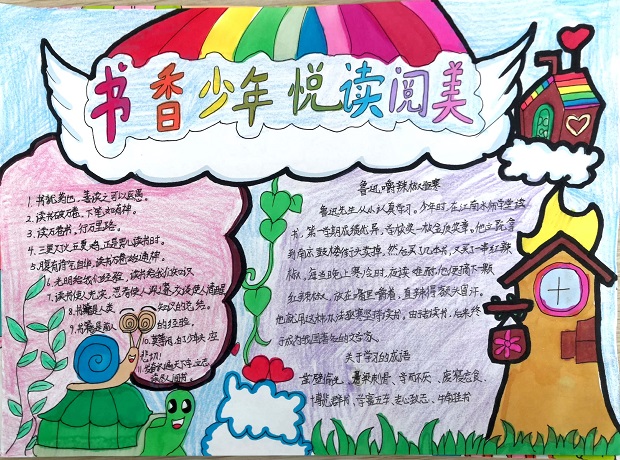 书香少年 悦读阅美
1. 书犹药也,善读之可以医愚。
2. 读书破万卷,下笔如有神。
3. 读万卷书,行万里路。
4. 三更灯火五更鸡,正是男儿读书时。
5. 腹有诗气自华,读书万卷始通神。
8. 书籍是人类 知识的
9. 书籍是 的经验。
10. 莫等闲,白了少年头,空
悲切!
11.
鲁迅嚼辣椒驱寒
鲁迅先生从小认真学习。少年时,在江南水师学堂读
书,第一学期成绩优异,学校奖一枚金质奖章。他立即拿
到南京鼓楼街头卖掉,然后买了几本书,又买了一串红辣
椒。每当晚上寒冷时,夜读难耐,他便摘下一颗
辣椒,放在嘴里嚼着,直辣得额头冒汗。
他就用这种办法驱寒坚持读书。由于苦读书,后来终
于成为我国著名的文学家。
关于学习的成语
凿壁偷光、悬梁刺骨、学而不厌、废寝忘食、
博览群书、学富五车、专心致志、牛角挂书